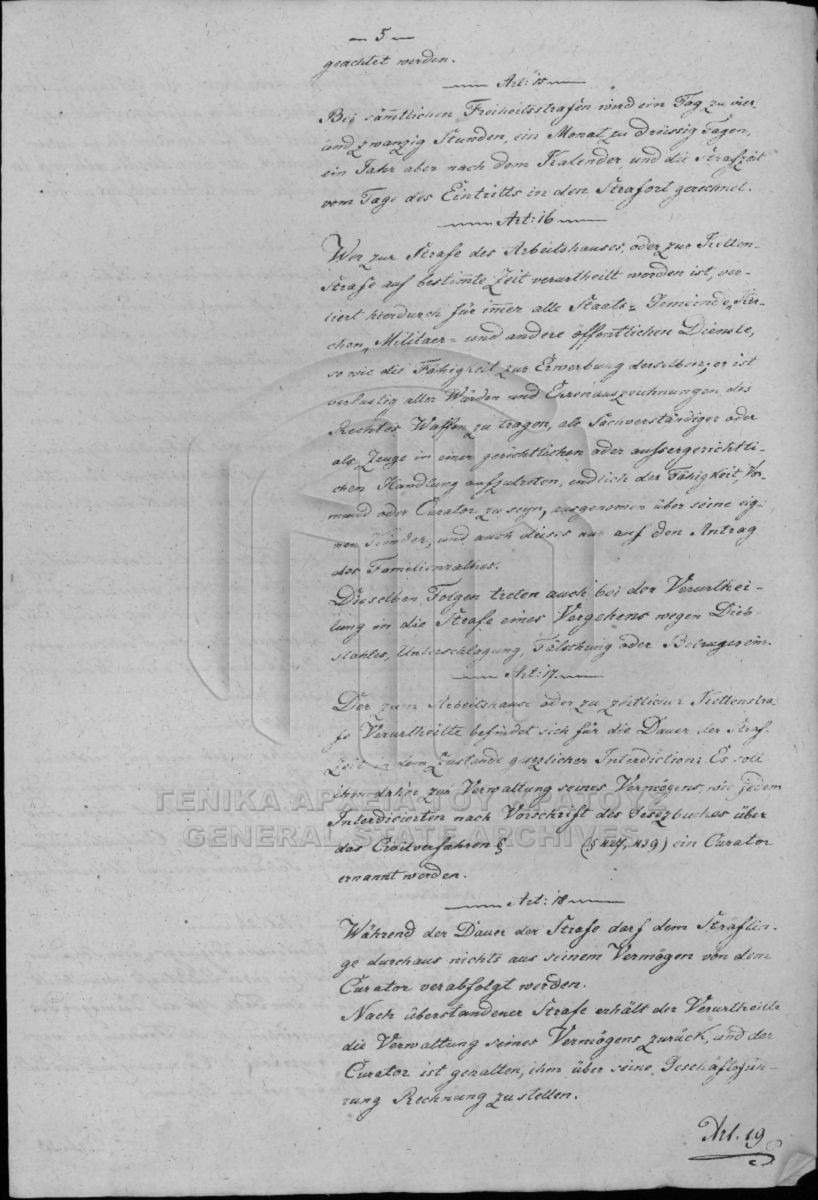 — 5 —
geachtet werden.
Art: 15
Bei sämtlichen Freiheitsstrafen wird ein Tag zu vier
und zwanzig Stunden, ein Monat zu dreissig Tagen,
ein Jahr aber nach dem Kalender und die Strafzeit
vom Tage des Eintritts in den Strafort gerechnet.
Art: 16
Wer zur Strafe des Arbeitshauses, oder zur Ketten-
strafe auf bestimmte Zeit verurtheilt worden ist, ver-
liert hierdurch für immer alle Staats- Gemeinde, Kir-
chen, Militaer- und andere öffentlichen Dienste,
so wie die Fähigkeit zur Erwerbung derselben; er ist
verlustig aller Würden und Ehrenauszeichnungen, des
Rechtes Waffen zu tragen, als Sachverständiger oder
als Zeuge in einer gerichtlichen oder aussergerichtli-
chen Handlung aufzutreten, endlich der Fähigkeit, Vor-
mund oder Curator zu seyn, ausgenomen über seine eig-
nen Kinder, und auch dieses nur auf den Antrag
des Familienrathes.
Dieselben Folgen treten auch bei der Verurthei-
lung in die Strafe eines Vergehens wegen Dieb-
stahles, Unterschlagung, Fälschung oder Betruges ein.
Art: 17.
Der zum Arbeitshause oder zu zeitlicher Kettenstra-
fe Verurtheilte befindet sich für die Dauer der Straf-
zeit in dem Zustande gesezlicher Interdiction; Es soll
ihm daher zur Verwaltung seines Vermögens, wie jedem
Interdicierten nach Vorschrift des Gesezbuches über
das Civilverfahren § ein Curator
ernannt werden.
Art: 18
Während der Dauer der Strafe darf dem Sträflin-
ge durchaus nichts aus seinem Vermögen von dem
Curator verabfolgt werden.
Nach überstandener Strafe erhält der Verurtheilte
die Verwaltung seines Vermögens zurück, und der
Curator ist gehalten, ihm über seine Geschäftsfüh-
rung Rechnung zu stellen.
Art. 19
ΓΕΝΙΚΑ ΑΡΧΕΙΑ ΤΟΥ ΚΡΑΤΟΥΣ
GENERAL STATE ARCHIVES